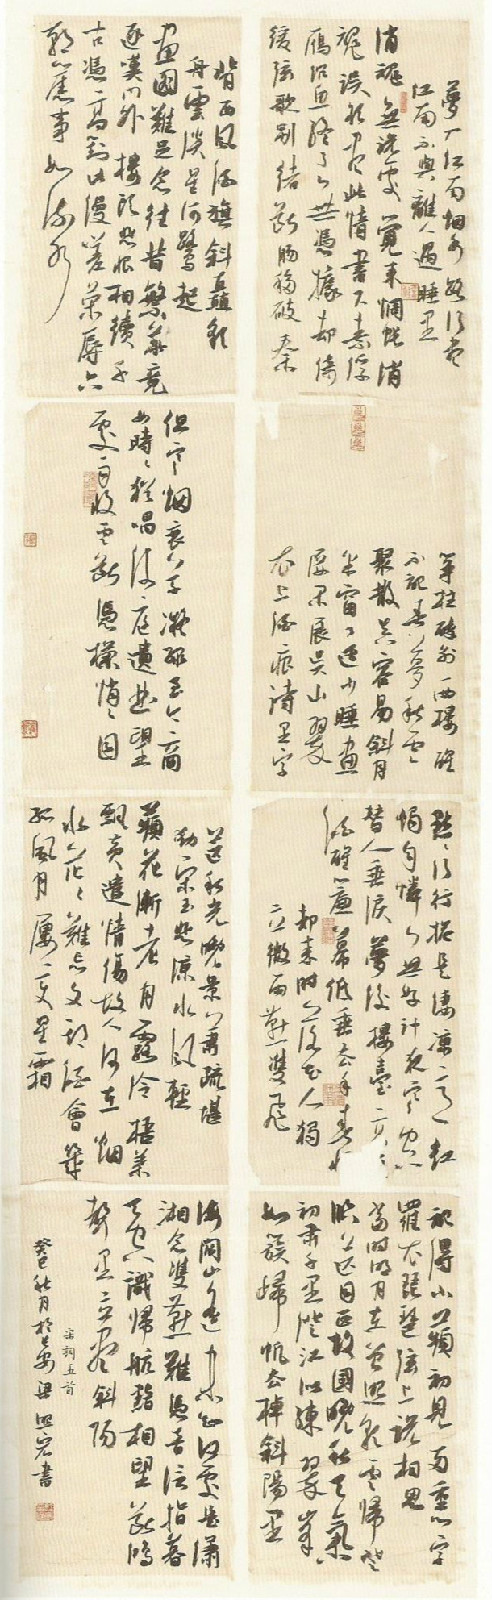 夢入江南烟水路行盡
江南不與離人遇睡裏
消魂無說處覺來惆悵消
魂誤欲盡此情書尺素浮
雁沉魚終了無憑據却倚
緩弦歌別緒斷腸移破秦
箏柱醉別西樓醒
不記春夢秋雲
聚散真容易斜月
半窗還少睡畫
屏閑展吳山翠
衣上酒痕詩裏字
點點行行總是淒涼意紅
燭自憐無好計夜寒空
替人垂淚夢後樓臺高
酒醒簾幕低垂去年春恨
却來時落花人獨
立微雨燕雙飛
記得小蘋初見兩重心字
羅衣琵琶弦上說相思
當時明月在曾照彩雲歸登
臨送目正故國晚秋天氣
初肅千里澄江似練翠峰
如簇歸帆去棹斜陽里
背西風酒旗斜矗彩
舟雲淡星河鷺起
畫圖難足念往昔繁華競
逐嘆門外樓頭悲恨相續千
古憑高對此漫嗟榮辱六
朝舊事如流水
但寒烟衰草凝綠至今商
女時時猶唱後庭遺曲望
處雨收雲斷憑欄悄悄目
送秋光晚景蕭疏堪
動宋玉悲涼水風輕
蘋花漸老月露冷梧葉
飄黃遣情傷故人何在烟
水茫茫難忘文期酒會幾
孤風月屢變星霜
海闊山遙未知何處是瀟
湘念雙燕難憑音信指暮
天空識歸航黯相望斷鴻
聲里立盡斜陽
宋詞五首
癸巳秋月於長安梁照宏書